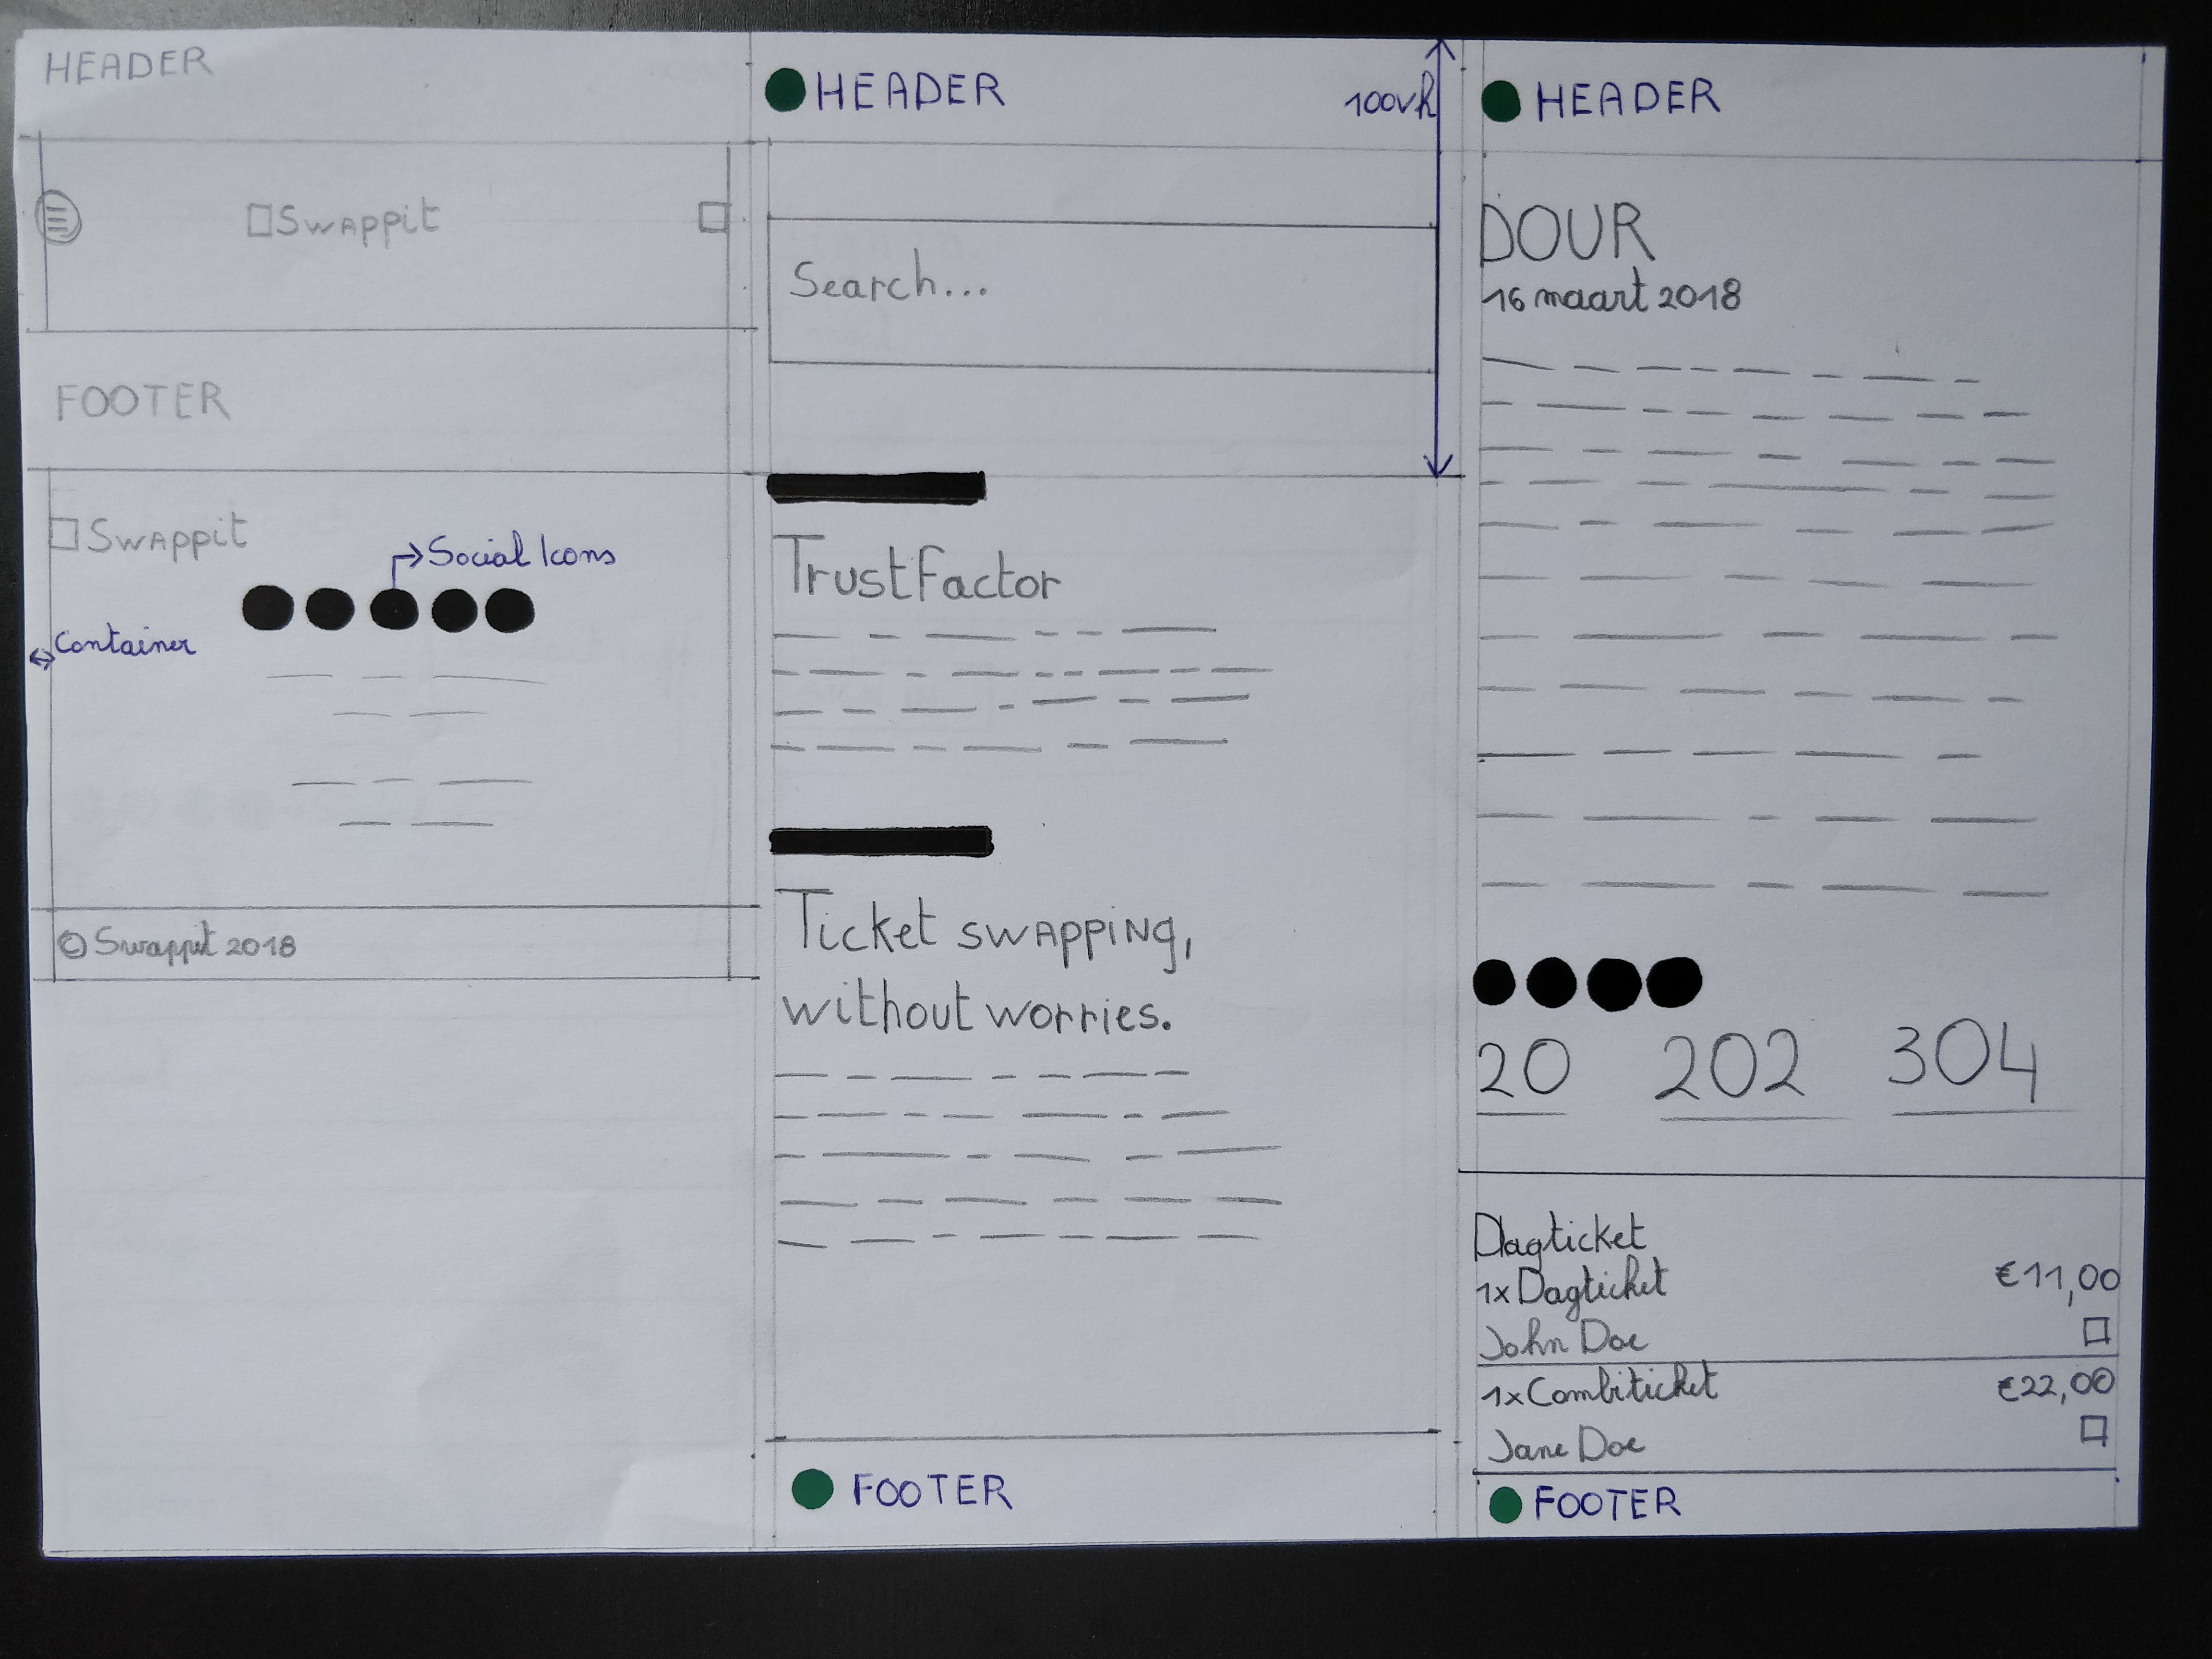 HEADER
Swappit
FOOTER
Swappit
Social Icons
Container
© Swappit 2018
HEADER
100vh
Search...
Trustfactor
Ticket swapping,
without worries.
FOOTER
HEADER
DOUR
16 maart 2018
20 202 304
Dagticket
1x Dagticket €11,00
John Doe
1x Combiticket €22,00
Jane Doe
FOOTER